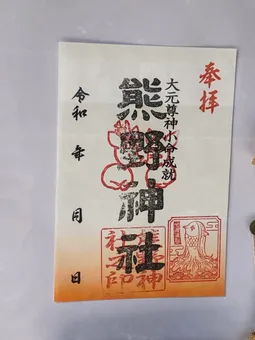 奉拝
大元尊神小令成就
熊野神社
令和　年　月　日
熊野神
社之印